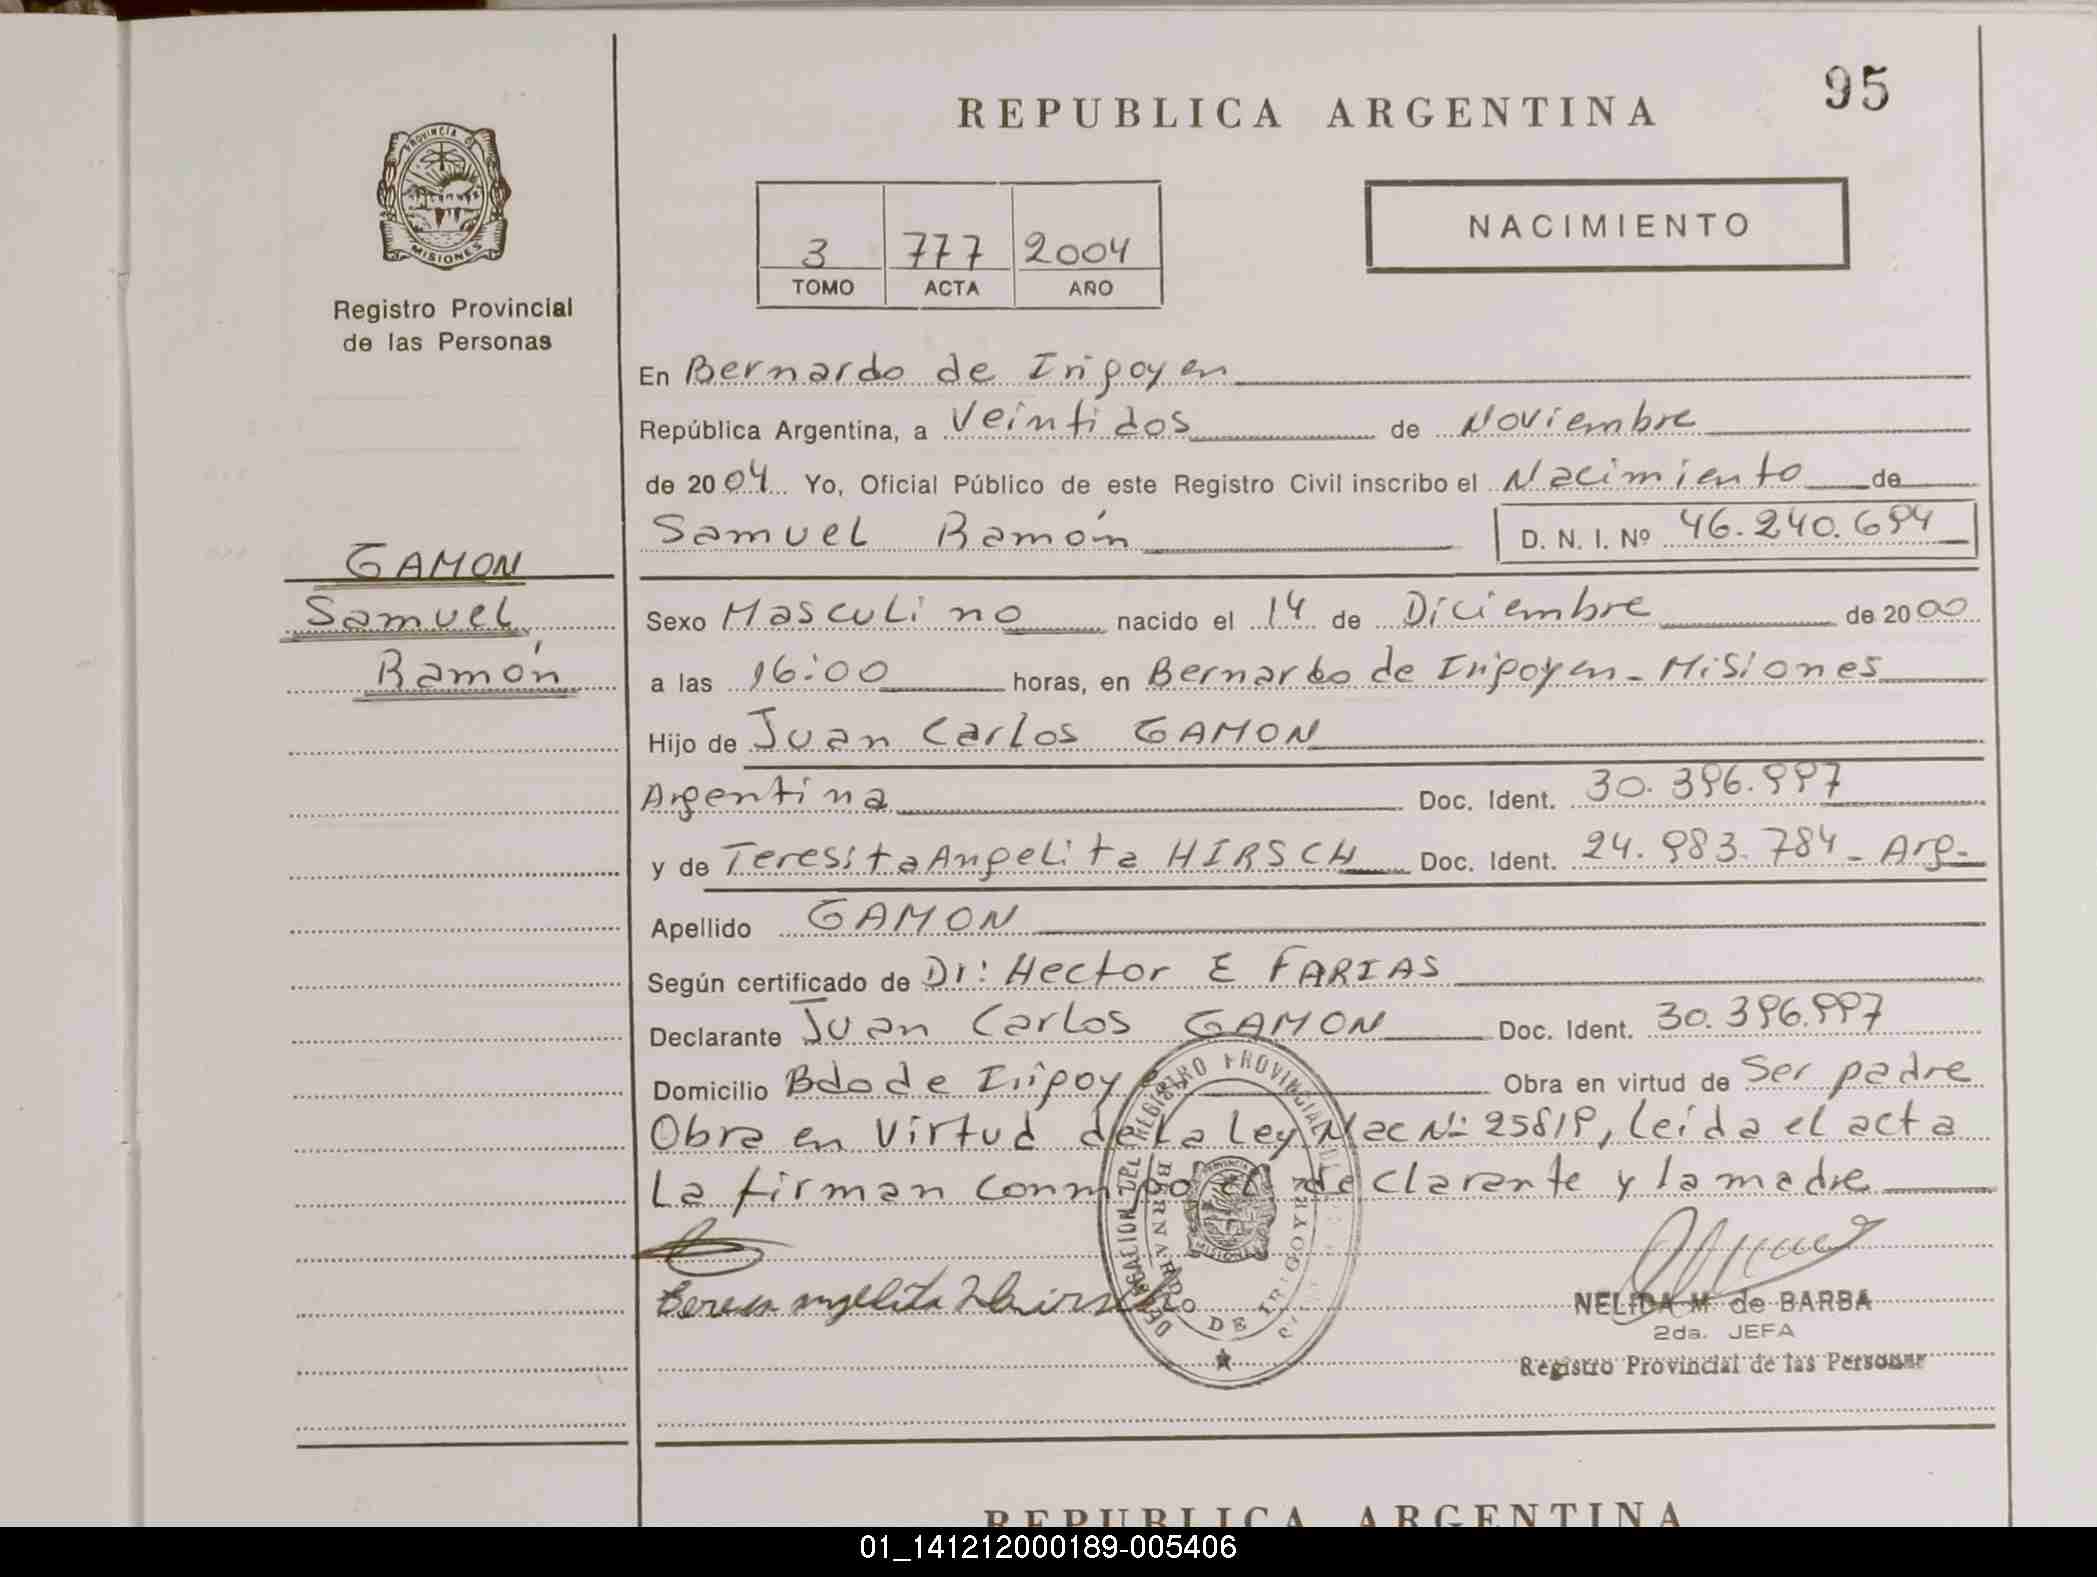 95
REPUBLICA ARGENTINA
PROVINCIA DE
MISIONES
Registro Provincial
de las Personas
NACIMIENTO
3 777 2004
TOMO ACTA AÑO
En Bernardo de Irigoyen
República Argentina, a Veintidos de Noviembre
de 2004 Yo, Oficial Público de este Registro Civil inscribo el Nacimiento de
Samuel Ramón D. N. I. Nº 46.240.694
GAMON
Samuel
Ramón
Sexo Masculino nacido el 14 de Diciembre de 2000
a las 16:00 horas, en Bernardo de Irigoyen - Misiones
Hijo de Juan Carlos GAMON
Argentina Doc. Ident. 30.396.997
y de Teresita Angelita HIRSCH Doc. Ident. 24.983.784 - Arg-
Apellido GAMON
Según certificado de Dr: Hector E FARIAS
Declarante Juan Carlos GAMON Doc. Ident. 30.396.997
Domicilio Bdo de Irigoyen Obra en virtud de Ser padre
Obra en Virtud de la Ley Nac Nº 25819, leída el acta
La firman conmigo el declarante y la madre
DELEGACION DEL REGISTRO PROVINCIAL DE
BERNARDO DE IRIGOYEN
MISIONES
NELIDA M de BARBA
2da. JEFA
Registro Provincial de las Personas
REPUBLICA ARGENTINA
01_141212000189-005406